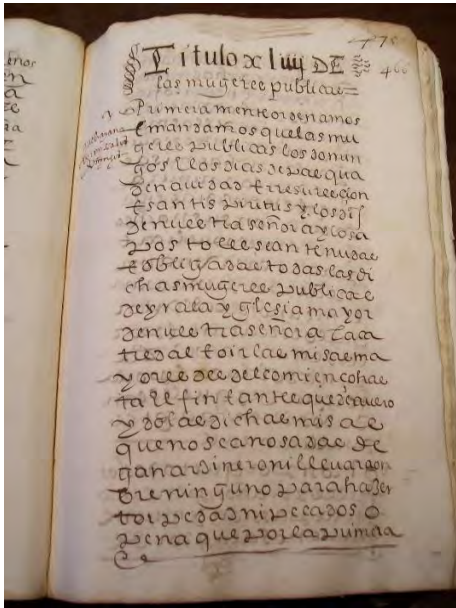 478
Titulo xliiij DE 466
las mugeres publicas
Primeramente ordenamos
E mandamos que las mu
geres publicas los domin
gos E los dias de pasqua
de nauidad E resurecçion
E santispiritus y los dis
de nuestra señora y los a
postoles sean tenudas
E obligadas todas las di
chas mugeres publicas
de yr a la yglesia mayor
de nuestra señora
E oir las misas ma
yores desde el comienço has
ta el fin E ante que
oydo las dichas misas
que no sean osadas de
ganar dinero ni lleuar on
bre ninguno para hazer
torpedad ni pecados so
pena que por la primera